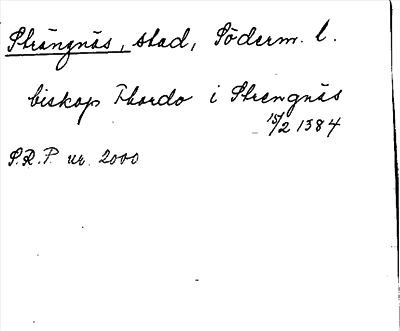 Strängnäs, stad, Söderm. l.
biskop Thordo i Strengnäs
15/2 1384
S.R.P. nr. 2000